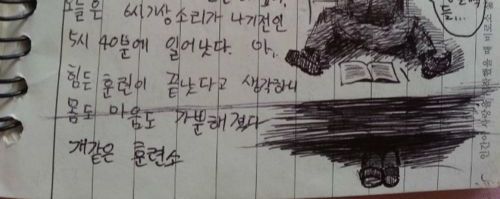 오늘은 6시 기상소리가 나기전인
5시 40분에 일어났다. 아..
힘든 훈련이 끝났다고 생각하니
몸도 마음도 가뿐해 졌다
개같은 훈련소